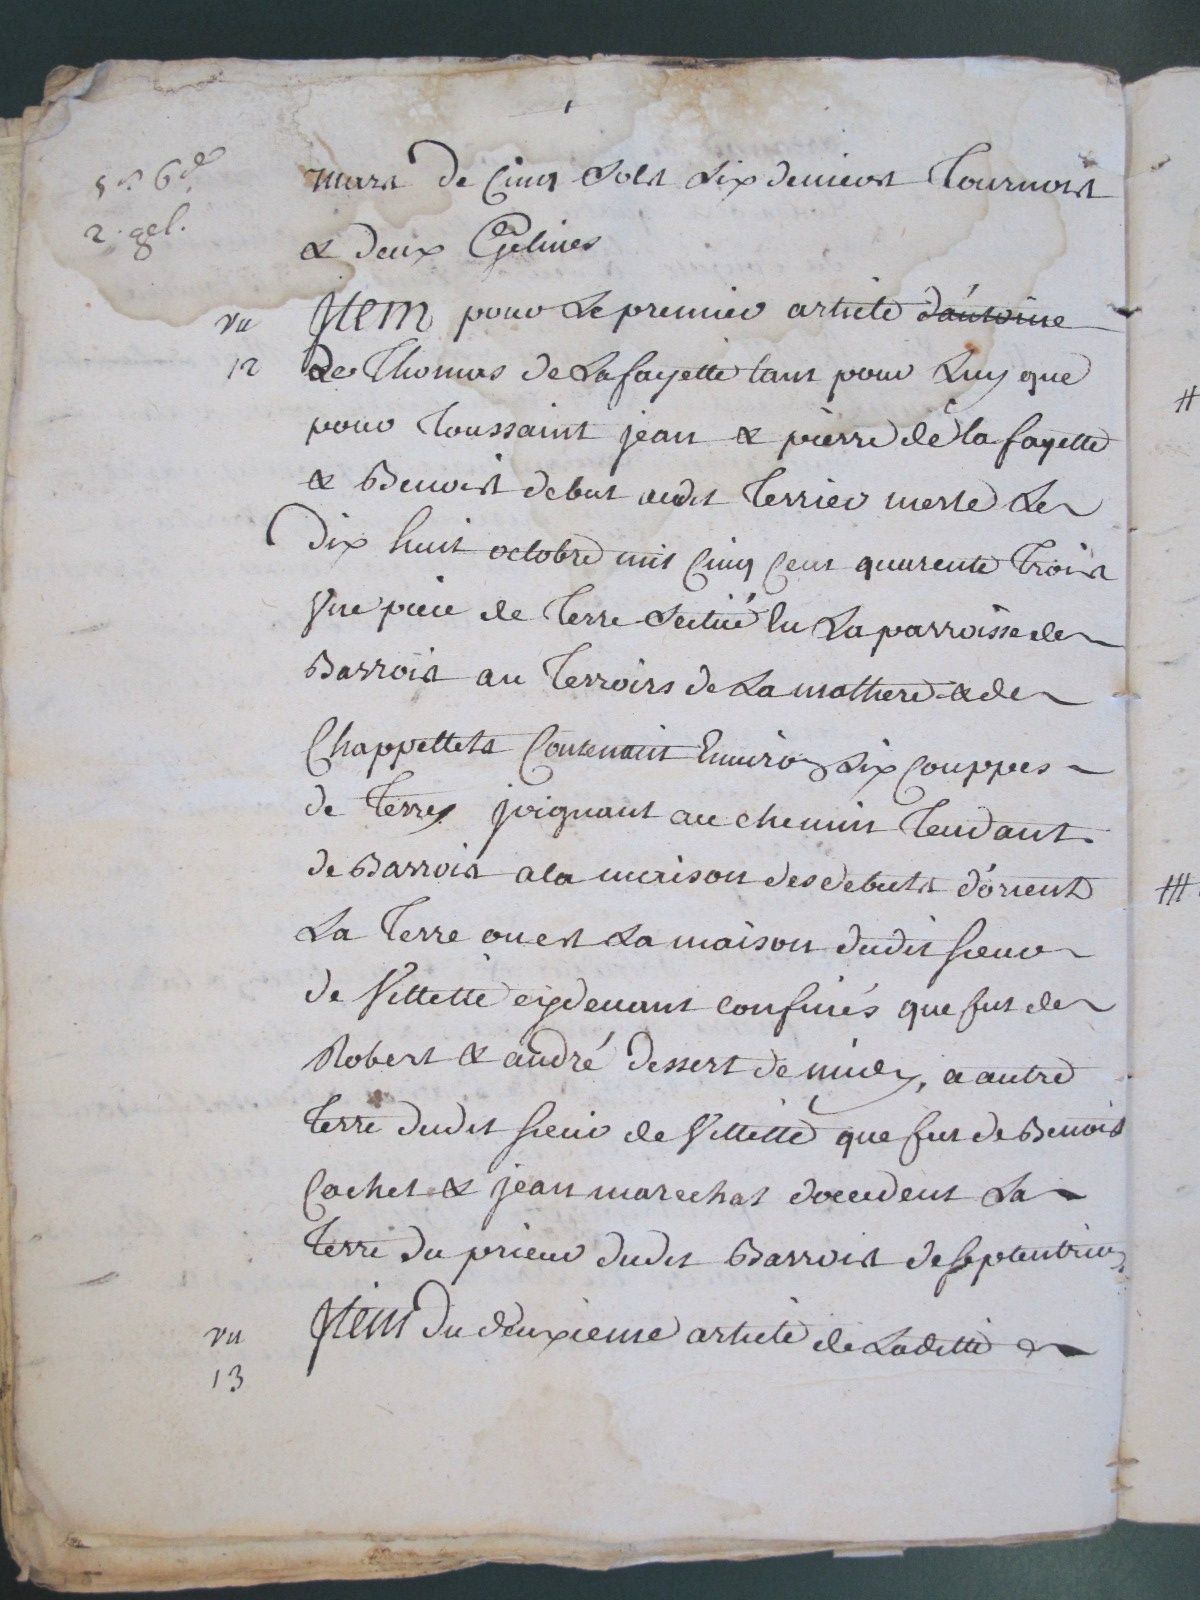 5 s 6 d
2. gel.
mars de Cinq Sols Six deniers Tournois
& deux Gelines
vu
12
Item pour Le premier article d'antoine
De Thomas de Lafayette tant pour Luy que
pour Toussaint jean & pierre de la fayette
& Benoist debut audit Terrier merle Le
Dix huit octobre mil Cinq Cent quarente Trois
Une piece de Terre Scitué En La parroisse de
Barrois au Terroirs de La mothere & de
Chappettets Contenant Environ Six Couppes
de Terres joignant au chemin Tendant
de Barrois a la maison des debuts d'orient
La Terre ou est La maison dudit Sieur
de Villette cydevant confinés que fut de
Robert & andré dessert de midy, a autre
Terre dudit Sieur de Villette que fut de Benoist
Cochet & jean marechal d'occident La
Terre du prieur dudit Barrois de septentrion
vu
13
Item du deuxieme article de Laditte
#